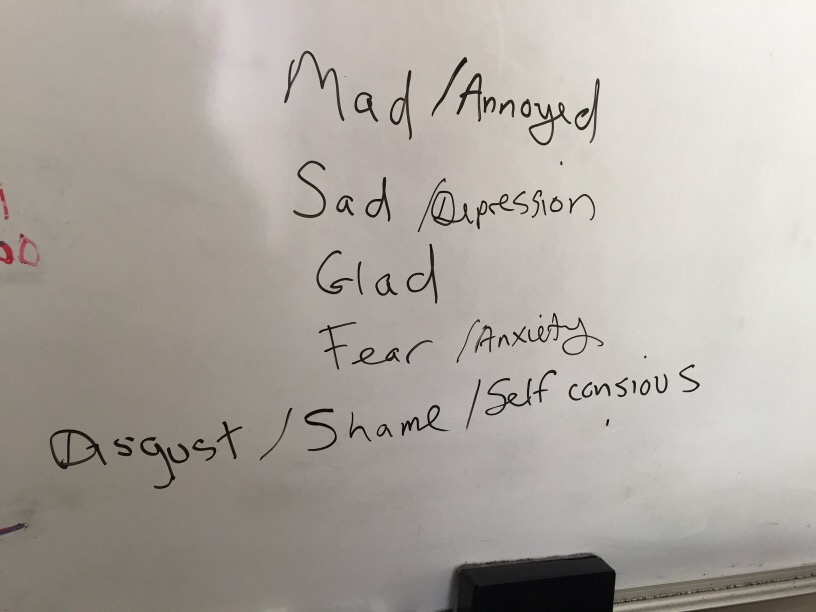 Mad / Annoyed
Sad / Depression
Glad
Fear / Anxiety
Disgust / Shame / Self consious